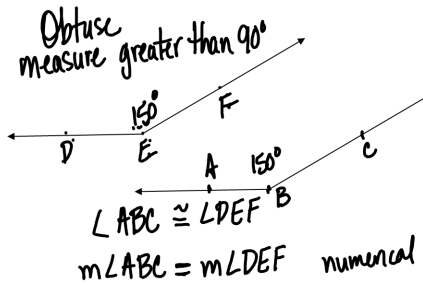 Obtuse
measure greater than 90°
150°
F
D
E
A
150°
C
B
∠ABC ≅ ∠DEF
m∠ABC = m∠DEF numerical